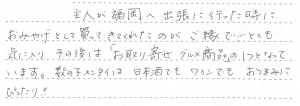 主人が福岡へ出張に行った時に
おみやげとして買ってきてくれたのがご縁でいとも
気に入り その後は「お取り寄せグルメ商品」の1つといわて
います。数の子メンタイは日本酒でもワインでもおつまみに
ぴったり!